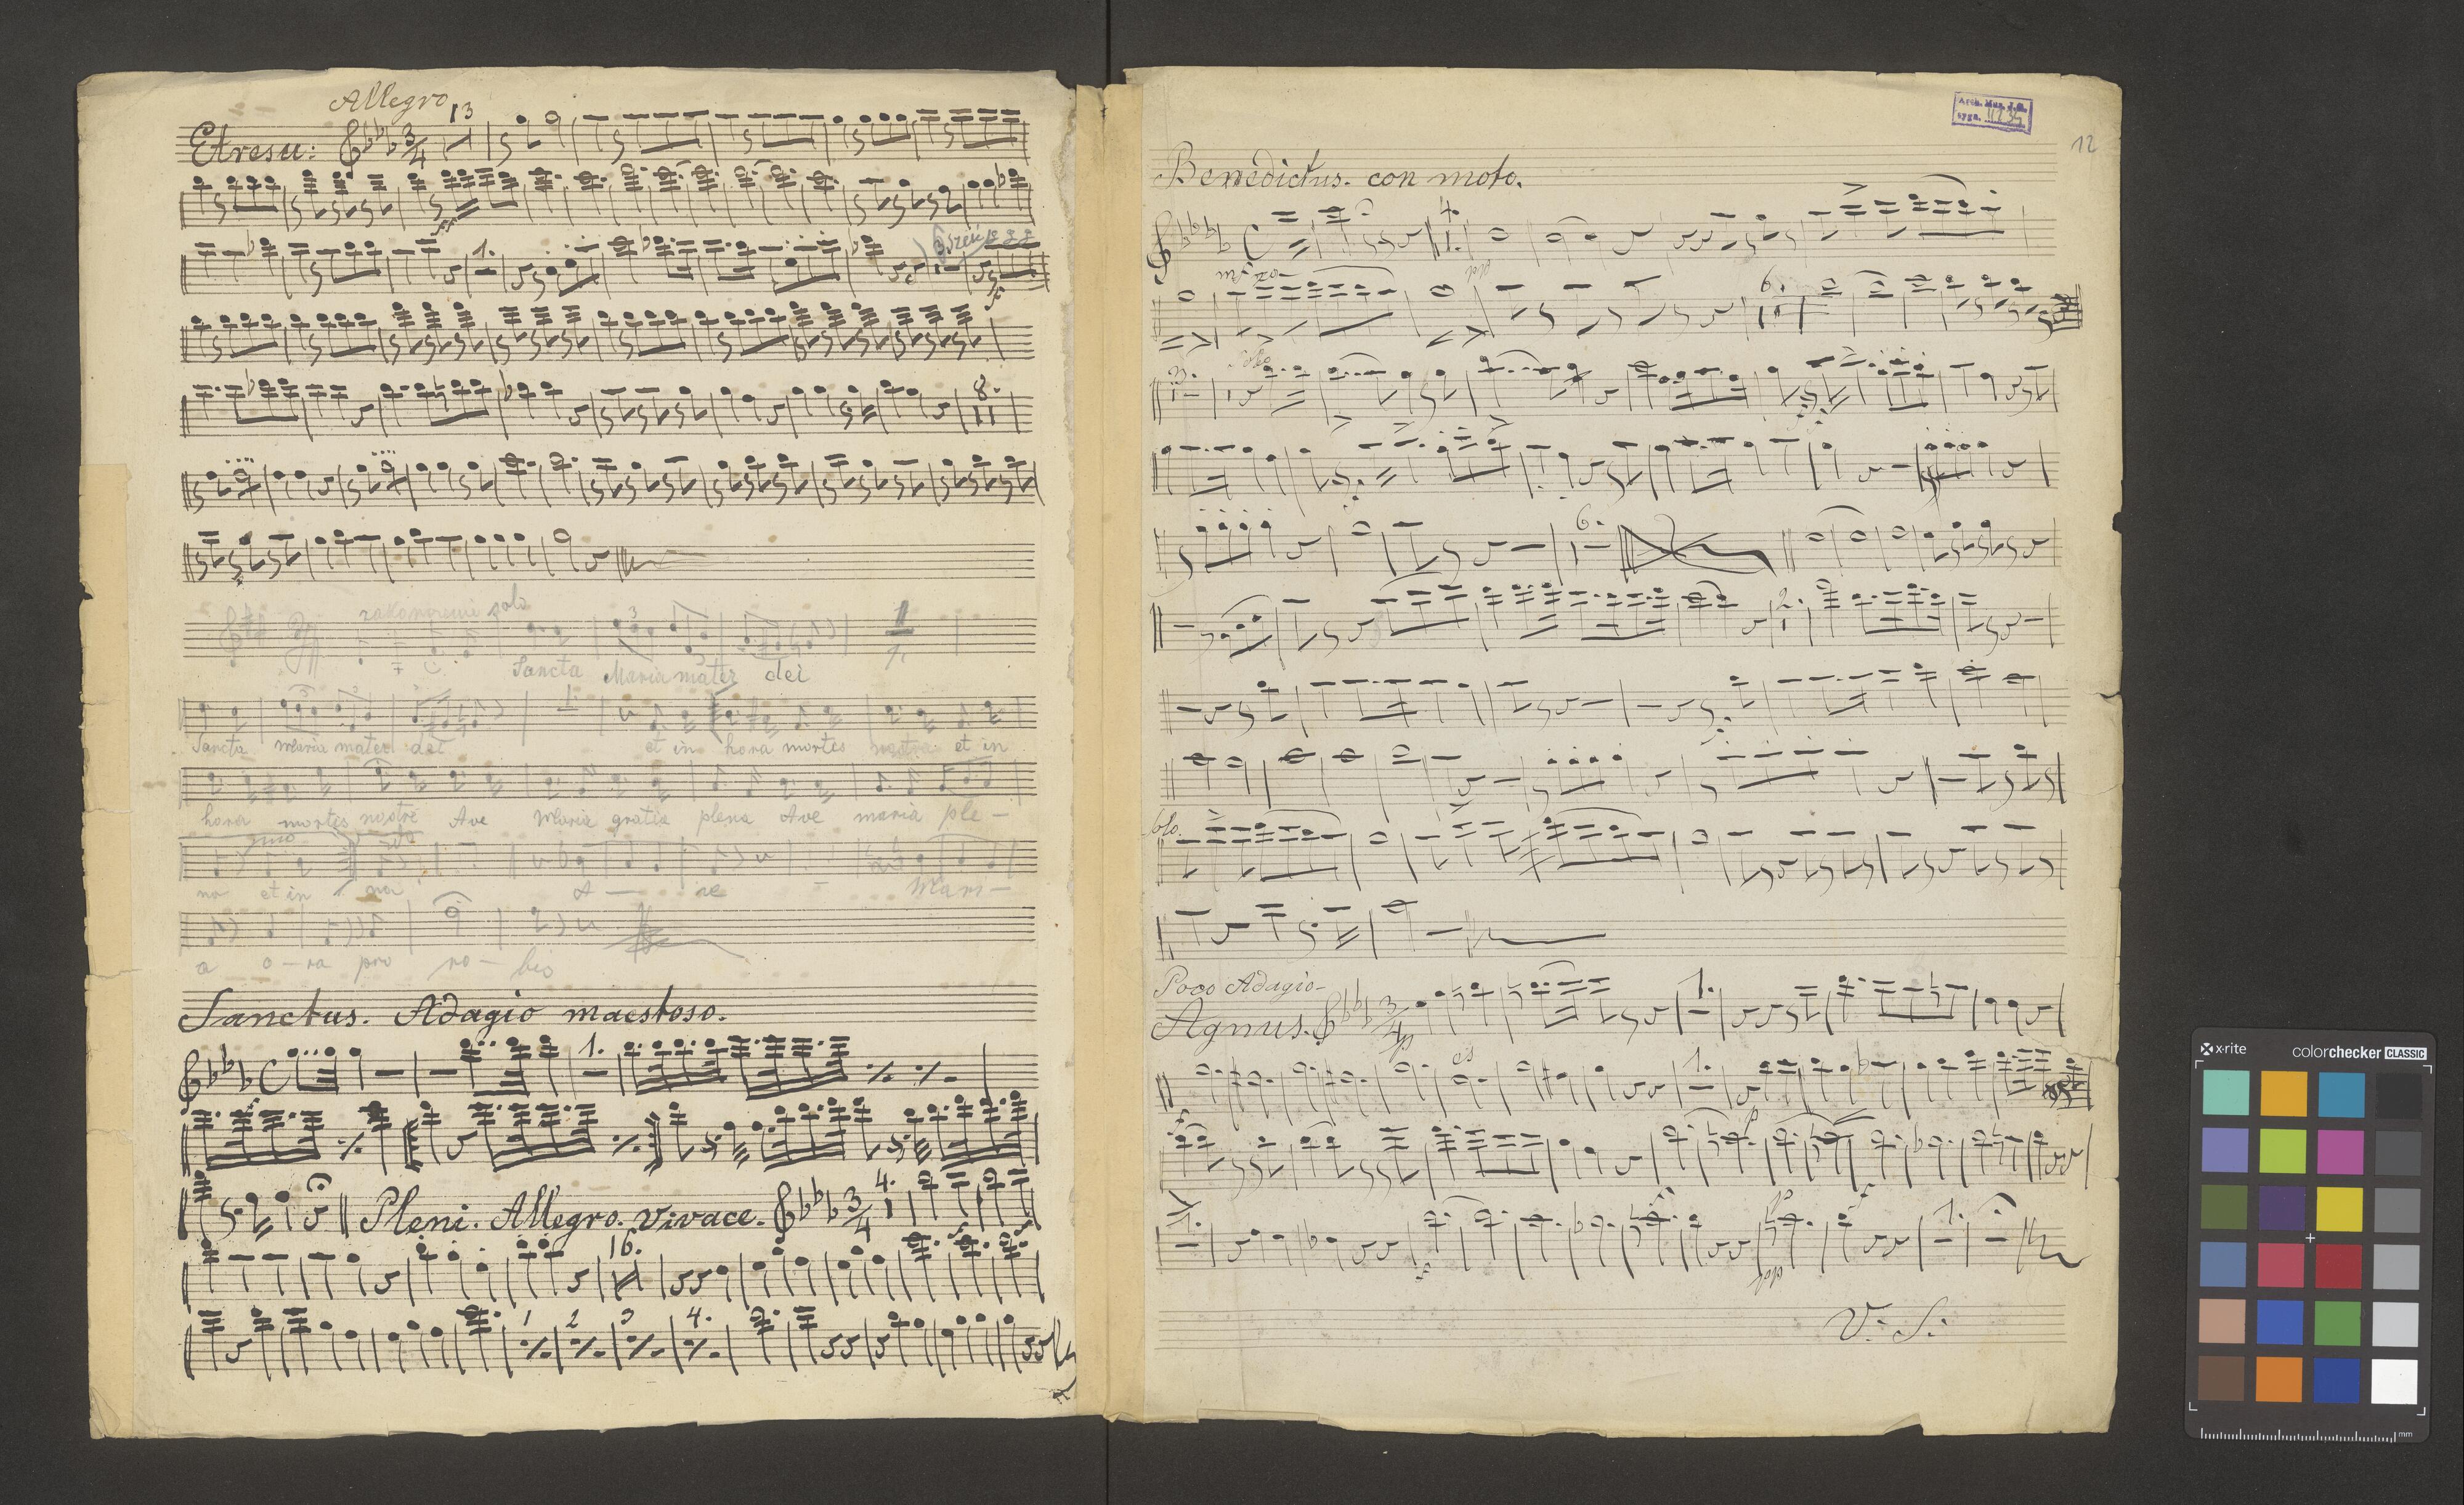 Allegro
13
Etresu: 3/4
1.
8.
solo
3
Sancta Maria mater dei
1.
Sancta Maria mater dei et in hora mortes nostra et in
hora mortes nostre Ave Maria gratia plena Ave maria ple-
no et in A — ve Mari-
a o-ra pro no-bis
Sanctus. Adagio maestoso.
1.
Pleni. Allegro. Vivace. 3/4 4.
16.
1 2 3 4.
Arch. Mus. J.G.
sygn. II 234
12
Benedictus. con moto.
4.
dol
6.
3. Solo
6.
2.
Solo.
Poco Adagio-
Agnus. 3/4 1.
es 1.
1. dol 1.
V: S:
x-rite colorchecker CLASSIC
mm